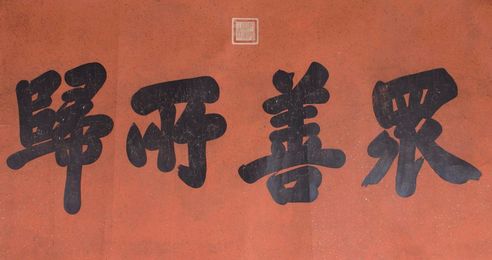 眾善所歸